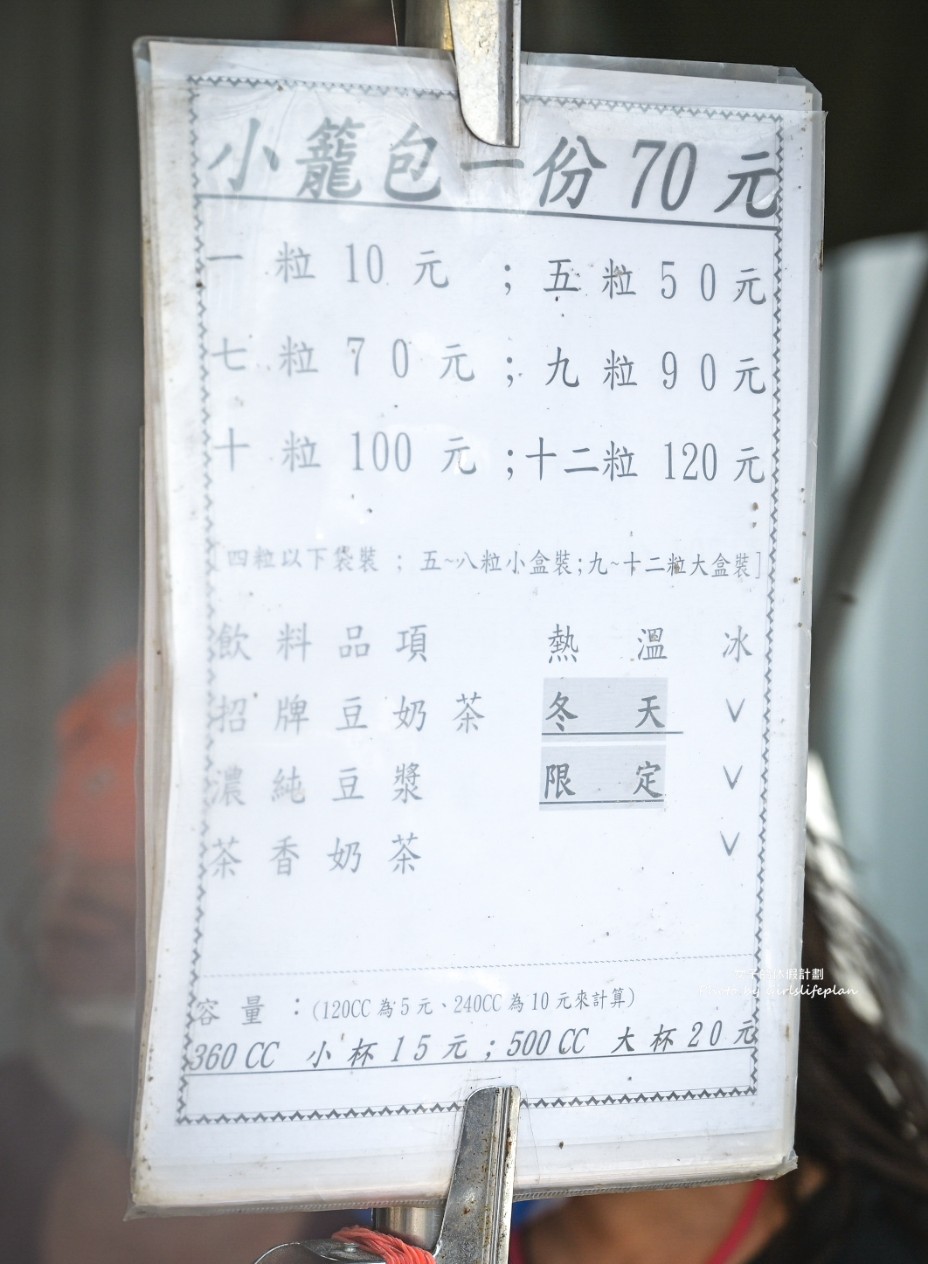 小籠包一份 70 元
一 粒 10 元 ; 五 粒 5 0 元
七 粒 7 0 元 ; 九 粒 9 0 元
十 粒 100 元 ; 十二粒 120 元
[ 四粒以下袋裝 ; 五~八粒小盒裝;九~十二粒大盒裝]
飲 料 品 項 熱 溫 冰
招 牌 豆 奶 茶 冬 天 ˅
濃 純 豆 漿 限 定 ˅
茶 香 奶 茶 ˅
容 量 : (120CC 為 5 元、240CC 為 10 元來計算)
360 CC 小 杯 1 5 元 ; 500 CC 大 杯 2 0 元
休假計劃
girlslifeplan